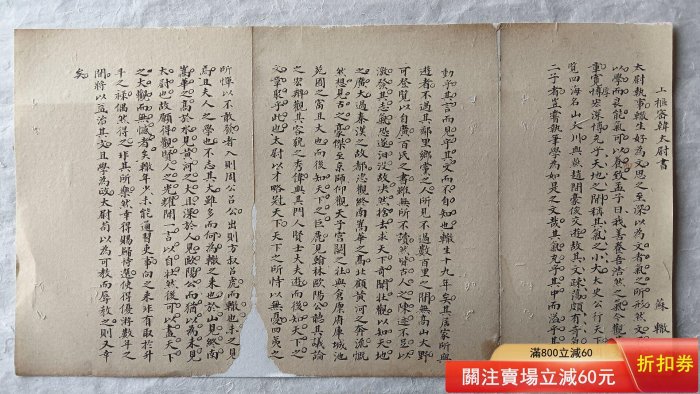 上樞密韓太尉書
蘇轍
太尉執事轍生好為文思之至深以為文者氣之所形然文
以學而能氣可以養致孟子曰我善養吾浩然之氣今觀
章寬博充乎天地之間稱其氣之小大太史公行天下
覽四海名山大川與燕趙間豪俊交遊故其文疎蕩頗有奇氣
二子者豈嘗執筆學為如是之文哉其氣充乎其中而溢乎其
動乎其言而見乎其文而不自知也轍生十九年矣其居家所與
遊者不過其鄰里鄉黨之人所見不過數百里之間無高山大野
可登覽以自廣百氏之書雖無所不讀然皆古人之陳迹不足以
激發其志氣恐遂汩沒故決然捨去求天下奇聞壯觀以知天地
之廣大過秦漢之故都恣觀終南嵩華之高北顧黃河之奔流慨
然想見古之豪傑至京師仰觀天子宮闕之壯與倉廩府庫城池
苑囿之富且大也而後知天下之巨麗見翰林歐陽公聽其議論
之宏辯觀其容貌之秀偉與其門人賢士大夫遊而後知天下之
文章聚乎此也太尉以才略冠天下天下之所恃以無憂四夷之
所憚以不敢發者入則周公召公出則方叔召虎而轍也未之見
焉且夫人之學也不志其大雖多而何為轍之來也於山見終南
嵩華之高於水見黃河之大且深於人見歐陽公而猶以為未見
太尉也故願得觀賢人之光耀聞一言以自壯然後可以盡天下
之大觀而無憾者矣轍年少未能通習吏事向之來非有取於升
斗之祿偶然得之非其所樂然幸得賜歸待選使得優游數年之
間將以益治其文且學為政太尉苟以為可教而辱教之則又幸
矣
滿800立減60
關注賣場立減60元
折扣券